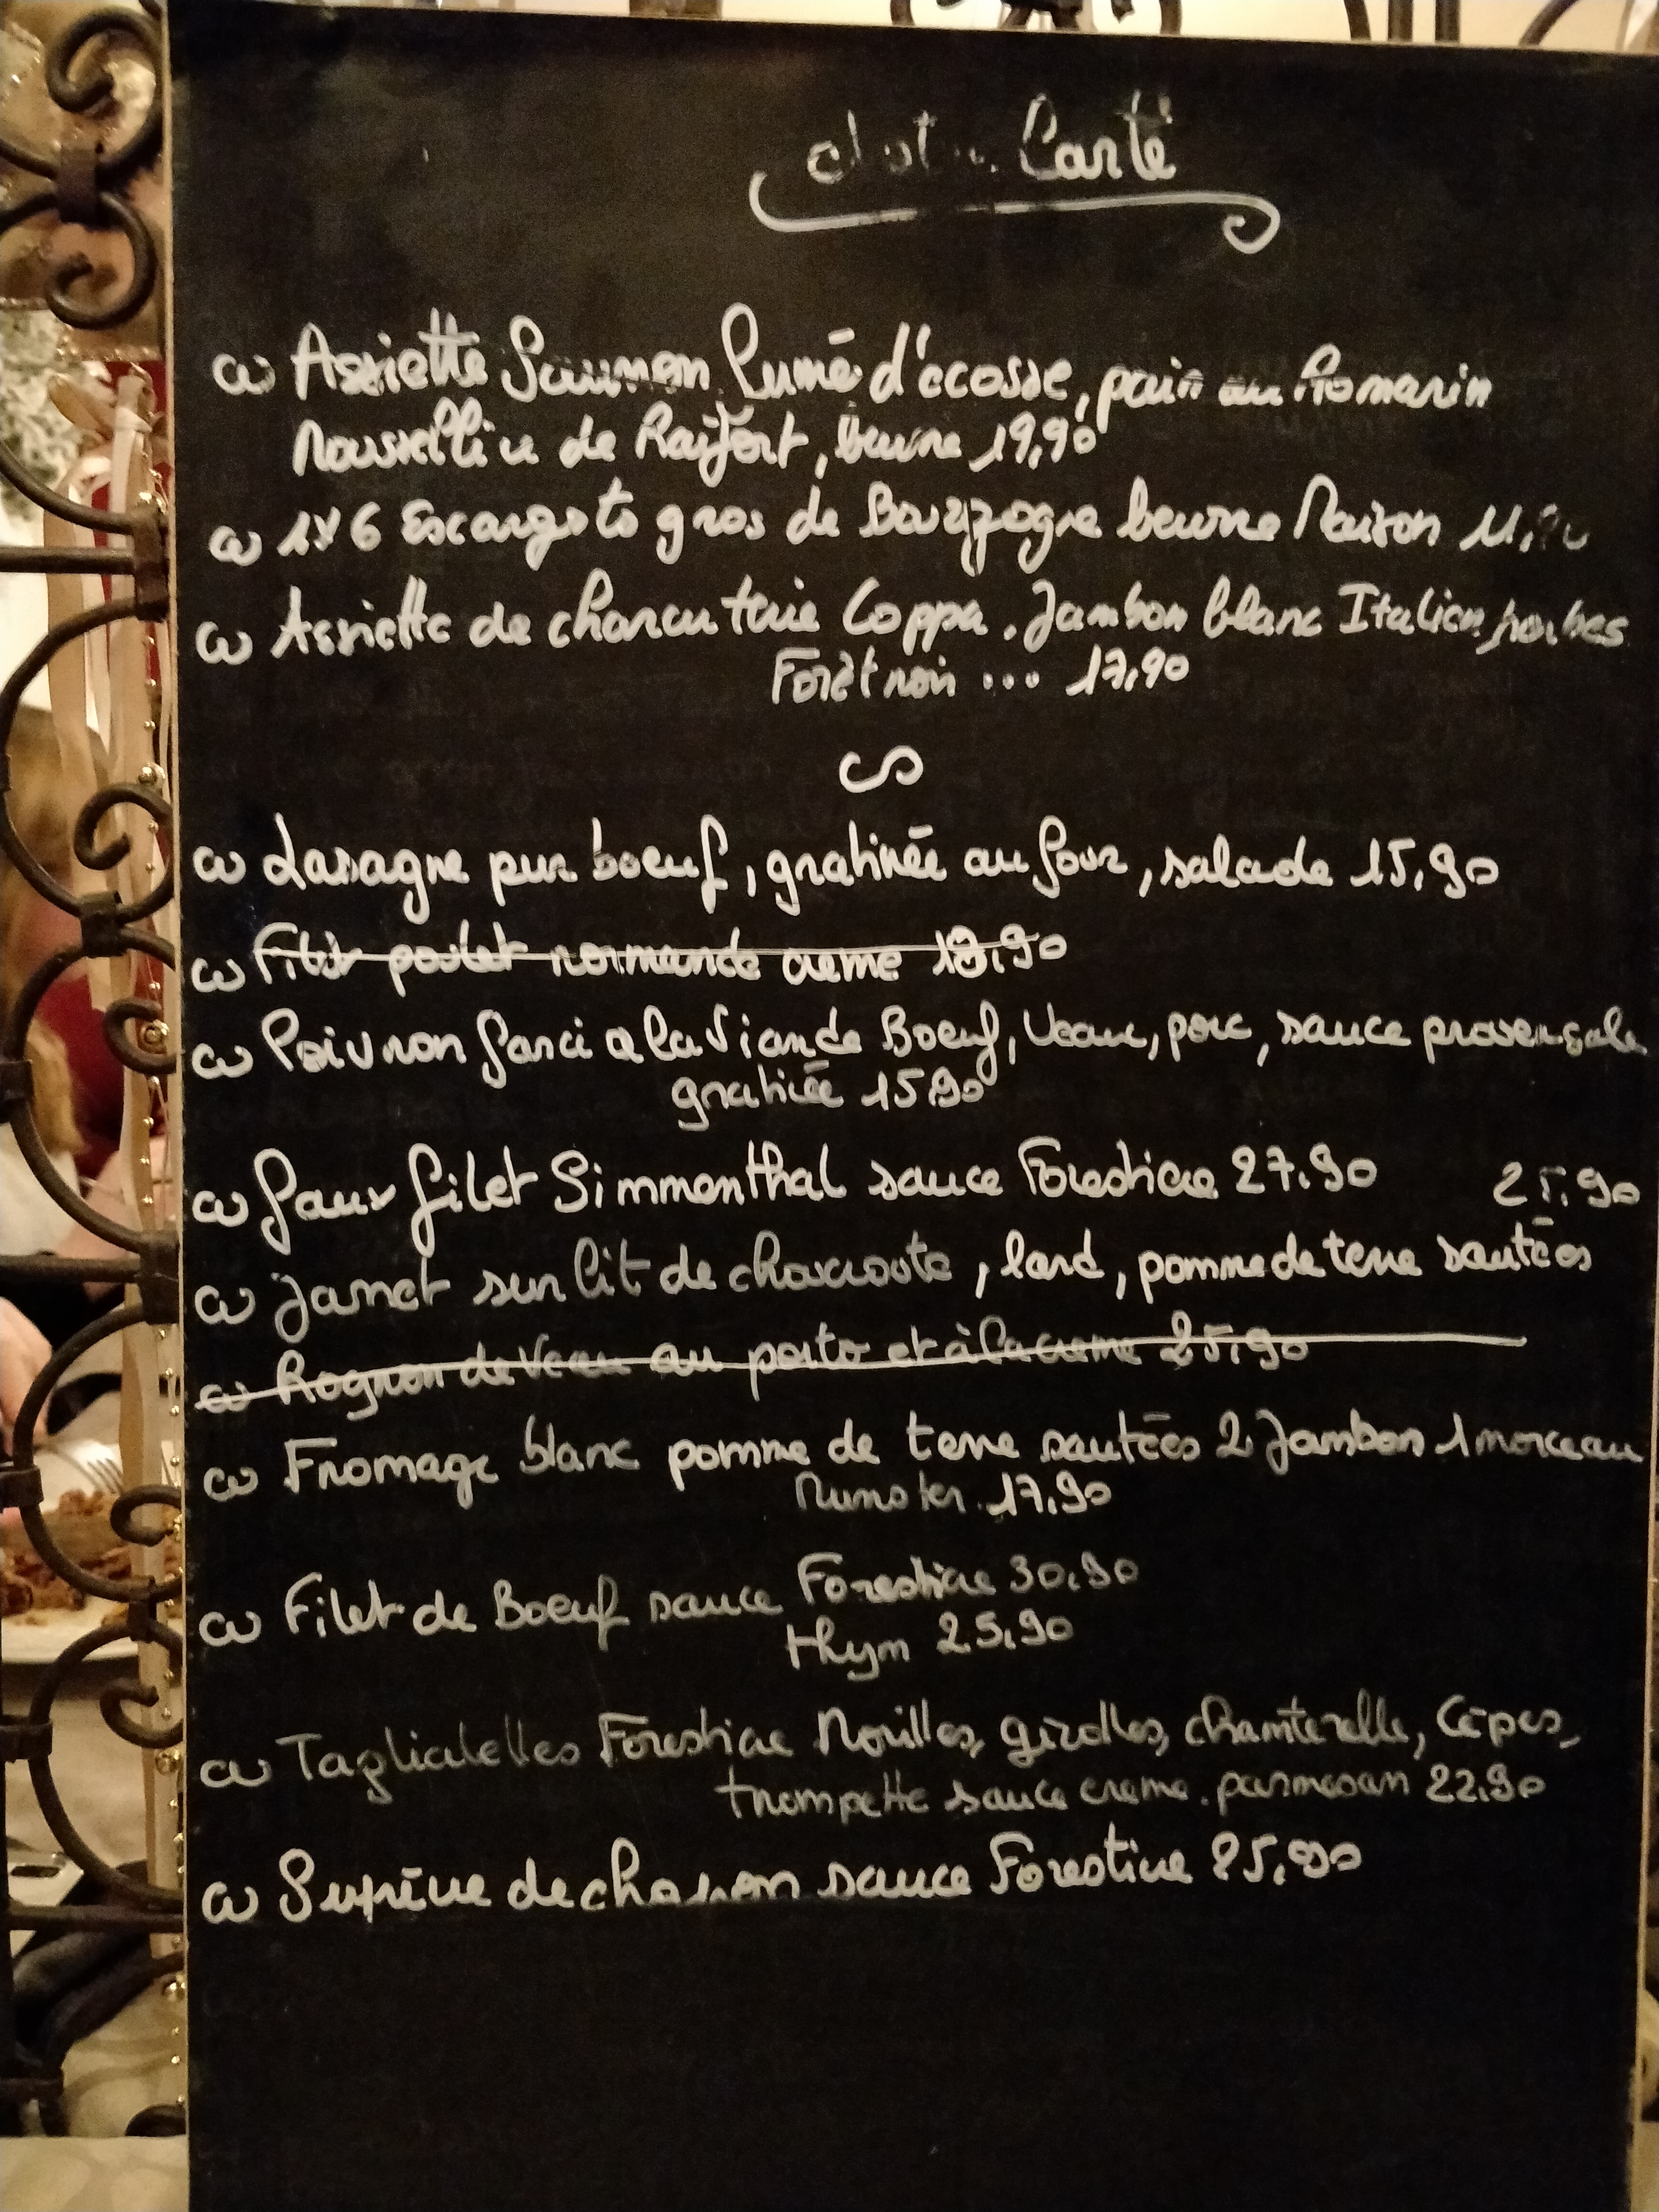 Carte
Assiette Saumon Fumé d'écosse, pain au Romarin
de Raifort, beurre 19,90
1x6 Escargots gros de Bourgogne beurre Maison
Assiette de charcuterie Coppa. Jambon blanc Italien, herbes
Forêt noir ... 17,90
Lasagne pur boeuf, gratinée au four, salade 15,90
Filet poulet normande creme 18,90
Poivron farci a la Viande Boeuf, Veau, porc, sauce provençale
gratinée 15.90
Faux filet Simmenthal sauce Forestiere 27.90
25.90
Jarret sur lit de choucroute, lard, pomme de terre sautées
Rognon de Veau au porto et à la creme 25,90
Fromage blanc pomme de terre sautées 2 Jambon 1 morceau
Munster 17.90
Filet de Boeuf sauce Forestiere 30.90
thym 25,90
Tagliatelles Forestiere Nouilles, girolles, chanterelle, Cêpes,
trompette sauce creme. parmesan 22.90
Suprême de chapon sauce Forestiere 25,90